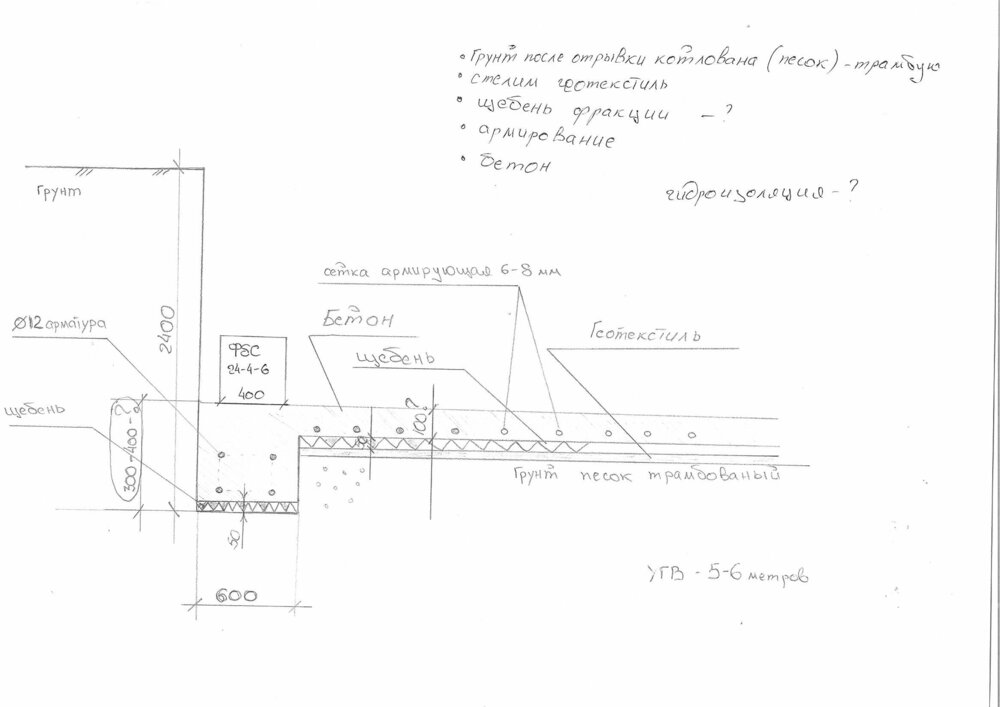 • Грунт после отрывки котлована (песок) - трамбую
• стелим геотекстиль
• щебень фракции - ?
• армирование
• бетон
гидроизоляция - ?
Грунт
сетка армирующая 6-8 мм
Ø12 арматура
2400
ФБС
24-4-6
400
Бетон
щебень
Геотекстиль
щебень
300-400-?
100?
50
Грунт песок трамбованый
50
600
УГВ - 5-6 метров